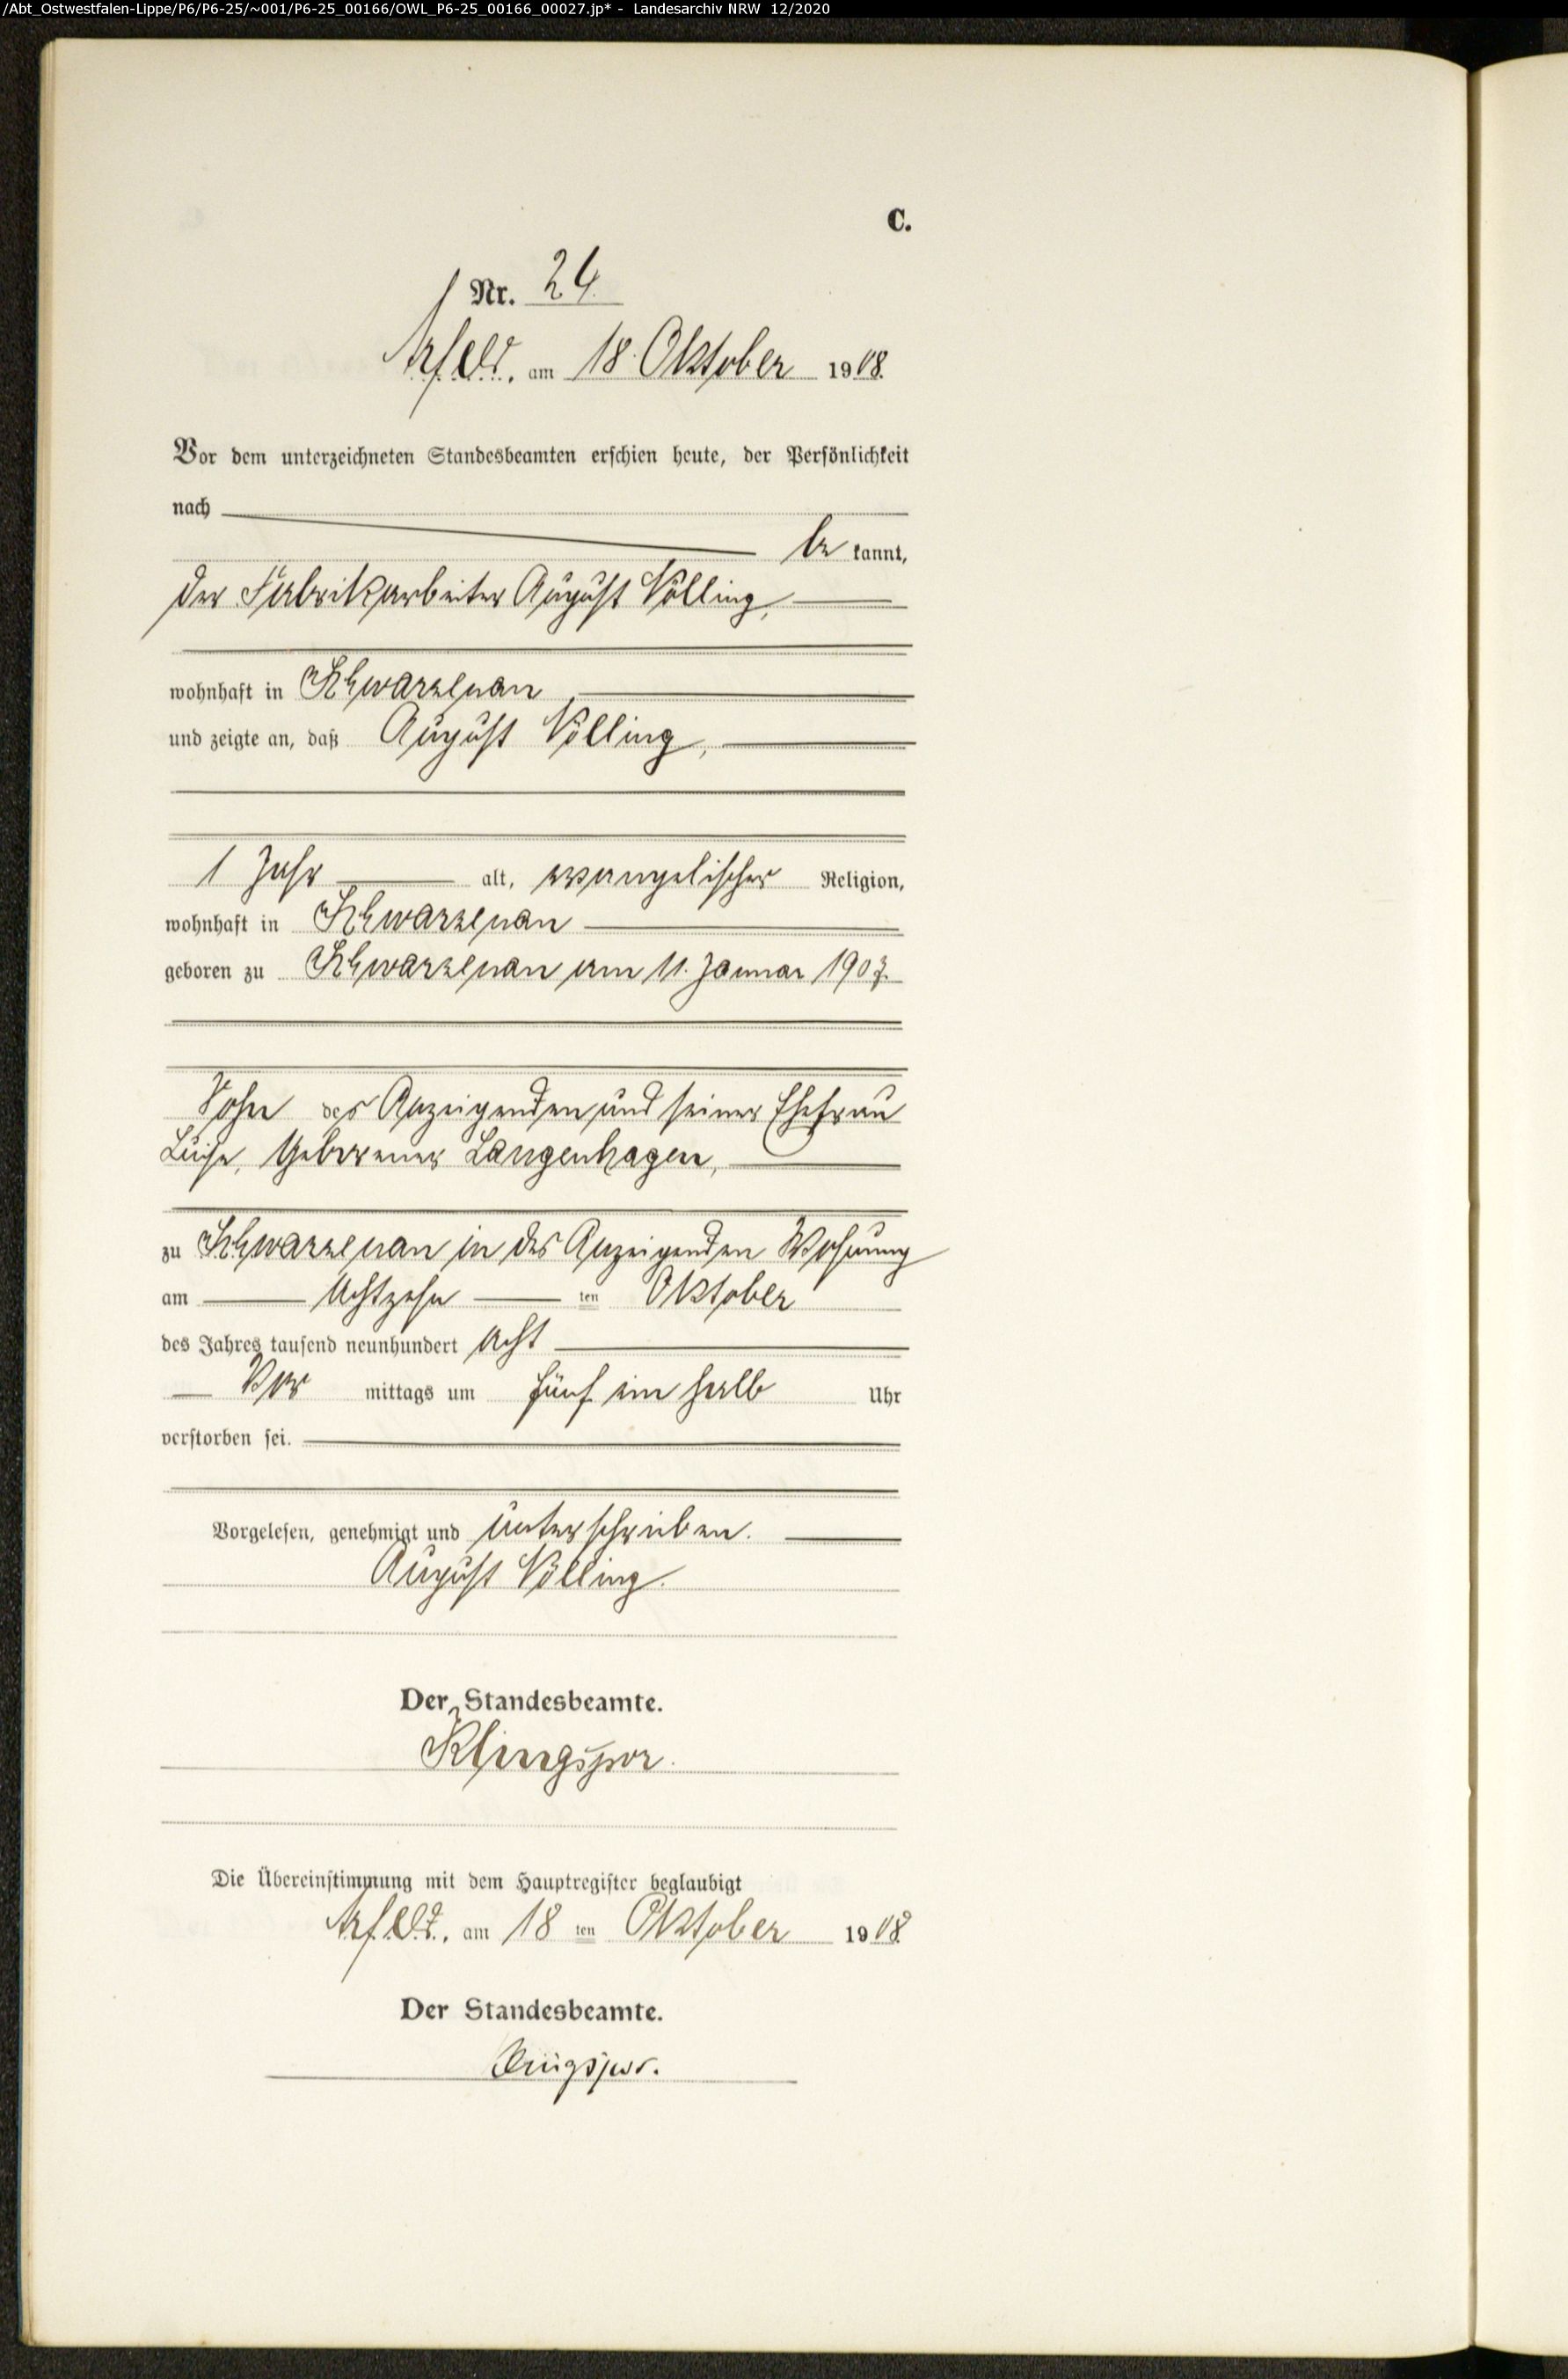 /Abt_Ostwestfalen-Lippe/P6/P6-25/~001/P6-25_00166/OWL_P6-25_00166_00027.jp* - Landesarchiv NRW 12/2020
C.
Nr. 24.
Arfeld, am 18. Oktober 1908.
Vor dem unterzeichneten Standesbeamten erschien heute, der Persönlichkeit
nach
be kannt,
der Fabrikarbeiter August Völling,
wohnhaft in Schwarzenau
und zeigte an, daß August Völling,
1 Jahr alt, evangelischer Religion,
wohnhaft in Schwarzenau
geboren zu Schwarzenau am 11. Januar 1907.
Sohn des Anzeigenden und seiner Ehefrau
Luise, Geborener Langenhagen,
zu Schwarzenau in des Anzeigenden Wohnung
am Achtzehn ten Oktober
des Jahres tausend neunhundert acht
Vor mittags um fünf ein halb Uhr
verstorben sei.
Vorgelesen, genehmigt und unterschrieben.
August Völling.
Der Standesbeamte.
Klingspor.
Die Übereinstimmung mit dem Hauptregister beglaubigt
Arfeld, am 18 ten Oktober 1908.
Der Standesbeamte.
Klingspor.